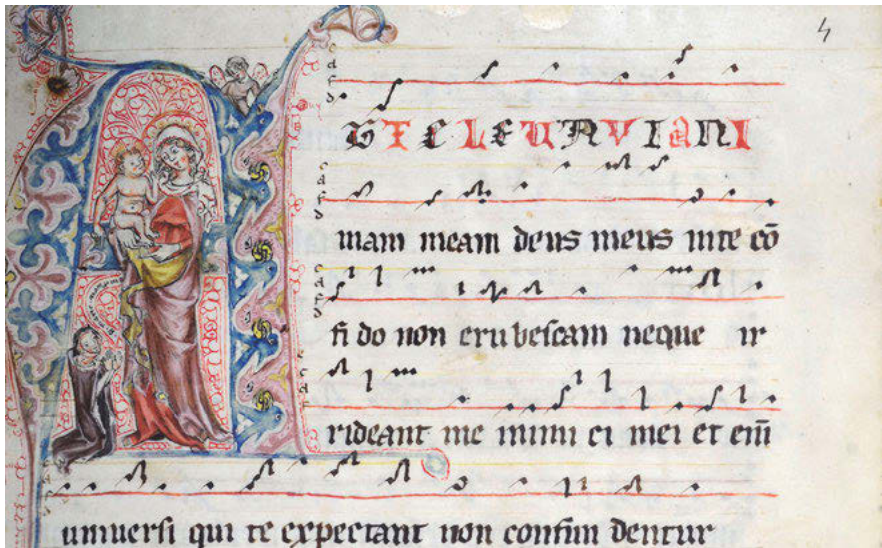 4
A D TE LEUAVI ANI
mam meam deus meus in te cō
fi do non erubescam neque ir
rideant me inimi ci mei et eni̅
uniuersi qui te expectant non confun dentur